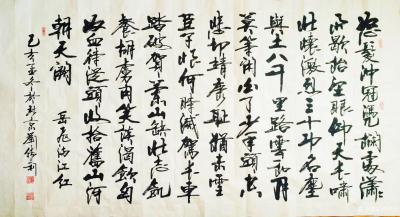 怒髮沖冠憑欄處瀟瀟
雨歇抬望眼仰天長嘯
壯懷激烈三十功名塵
與土八千里路雲和月
莫等閒白了少年頭空
悲切靖康恥猶未雪
臣子恨何時滅駕長車
踏破賀蘭山缺壯志飢
餐胡虜肉笑談渴飲匈
奴血待從頭收拾舊山河
朝天闕 岳飛滿江红
己亥孟冬於北京劉